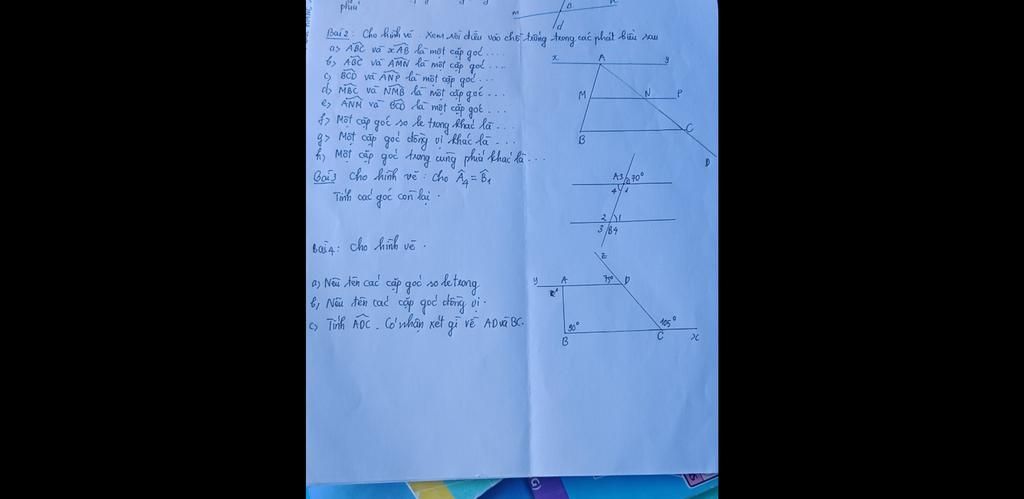 phía
m
d
Bài 2: Cho hình vẽ. Xem rồi điền vào chỗ trống trong các phát biểu sau
a) ABC và xAB là một cặp góc ....
b) ABC và AMN là một cặp góc ....
c) BCD và ANP là một cặp góc ...
d) MBC và NMB là một cặp góc ...
e) ANM và BCD là một cặp góc ....
f) Một cặp góc so le trong khác là ...
g) Một cặp góc đồng vị khác là ...
h) Một cặp góc trong cùng phía khác là ...
x A y
M N P
B C
D
Bài 3 Cho hình vẽ: cho A4 = B1
Tính các góc còn lại.
A3 2 70°
4 1
2 1
3 B4
Bài 4: Cho hình vẽ.
a) Nêu tên các cặp góc so le trong
b) Nêu tên các cặp góc đồng vị.
c) Tính ADC. Có nhận xét gì về AD và BC.
z
y A 75° D
90° 105°
B C x